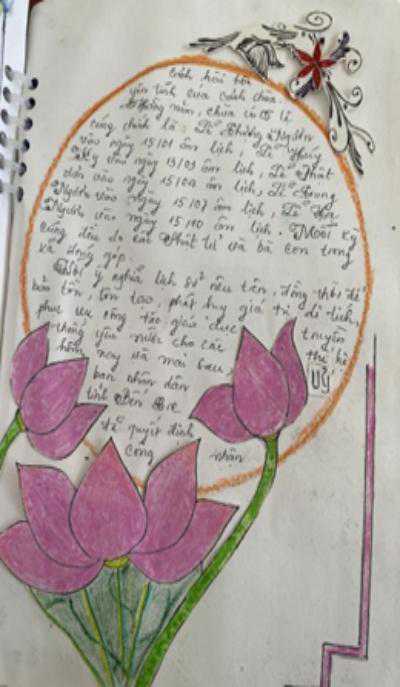 yên tĩnh của cảnh chùa.
Hằng năm, chùa có 5 lễ
cúng chính là: Lễ Thượng Nguơn
vào ngày 15/01 âm lịch, Lễ
Kỵ vào ngày 13/03 âm lịch, Lễ Phật
đản vào ngày 15/04 âm lịch, Lễ Trung
Nguơn vào ngày 15/07 âm lịch, Lễ Hạ
Nguơn vào ngày 15/10 âm lịch. Mỗi kỳ
cúng đều do các Phật tử và bà con trong
xã đóng góp.
Với ý nghĩa lịch sử nêu trên, đồng thời để
bảo tồn, tôn tạo, phát huy giá trị di tích,
phục vụ công tác giáo dục truyền
thống yêu nước cho các thế hệ
hôm nay và mai sau, Uỷ
ban nhân dân
tỉnh Bến Tre
đã quyết định
công nhận